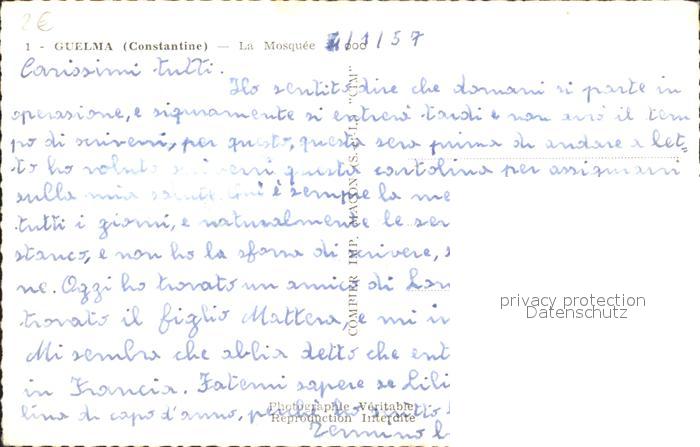 2€
1 - GUELMA (Constantine) — La Mosquée
1/1/57
Carissimi tutti.
Ho sentito dire che domani si parte in
operasione, e siguramente si entrerà tardi e non avrò il tem
po di scriverri, per questo, questa sera prima di andare a let=
to ho voluto scriverri questa cartolina per assigurarri
sulla mia salute. Qui è sempre la me
tutti i giorni, e naturalmente le ser
stanco, e non ho la sforsa di scrivere, s
ne. Oggi ho trovato un amico di Lan
trovato il figlio Mattera, e mi in
Mi sembra che abbia detto che ent
in Francia. Fatemi sapere se Lili
lina di capo d'anno, perchè ho scritto
Termino
COMBIER IMP. MACON (S.-&-L.) "CIM"
Photographie Véritable
Reproduction Interdite
privacy protection
Datenschutz